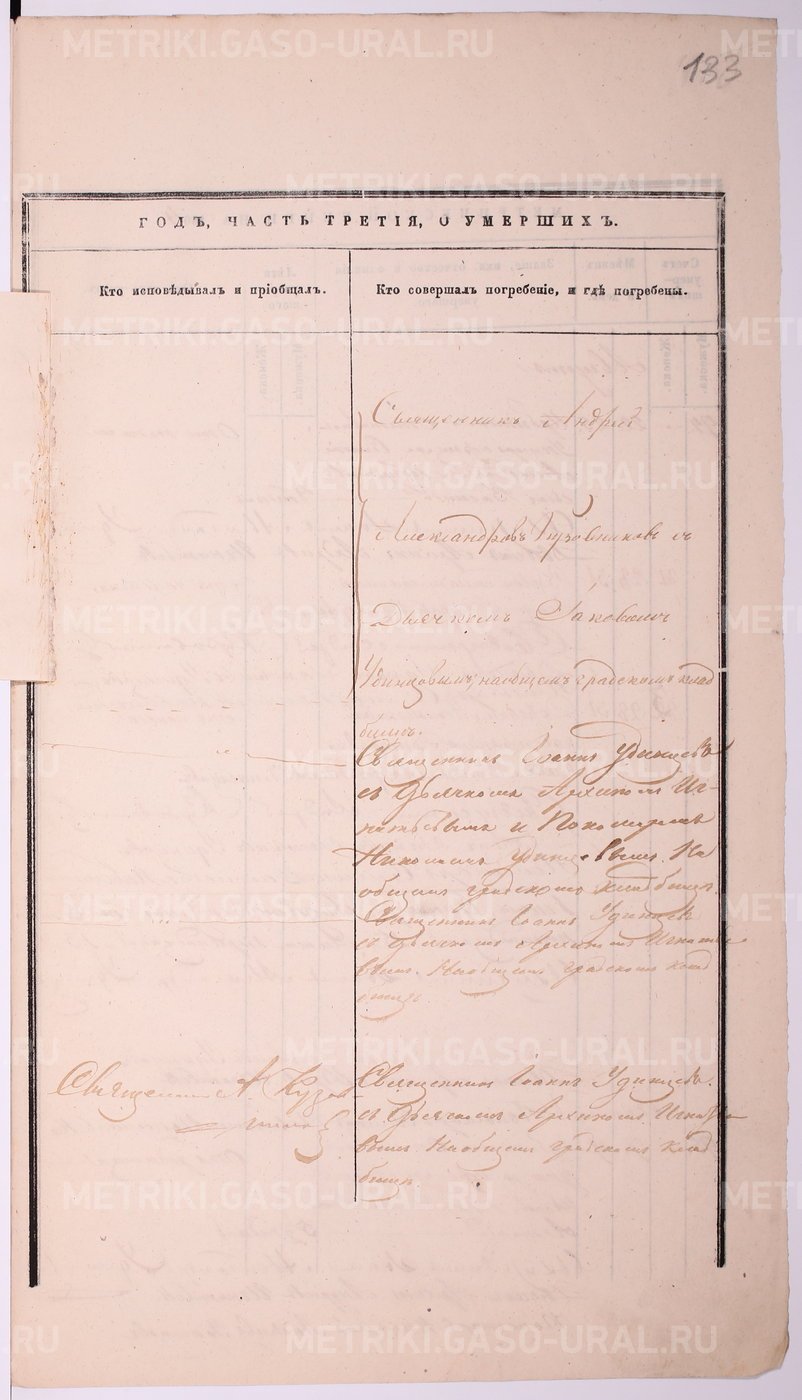 133
ГОДЪ, ЧАСТЬ ТРЕТІЯ, О УМЕРШИХЪ.
Кто исповѣдывалъ и пріобщалъ.
Кто совершалъ погребеніе, и гдѣ погребены.
Священникъ Андрей
Александровъ съ
Дьячкомъ Іаковомъ
Удинцовымъ, на общемъ градскомъ клад
бищѣ.
Священникъ Іоаннъ Удинцевъ
съ Дьячкомъ Архипомъ Иг-
натьевымъ и Пономаремъ
Николаемъ Удинцевымъ. На
общемъ градскомъ кладбищѣ.
Священникъ Іоаннъ Удинцевъ
съ Дьячкомъ Архипомъ Игнатье
вымъ. На общемъ градскомъ клад
бищѣ.
Священникъ А.
Священникъ Іоаннъ Удинцевъ.
съ Дьячкомъ Архипомъ Игнатье
вымъ. На общемъ градскомъ клад
бищѣ.
METRIKI.GASO-URAL.RU